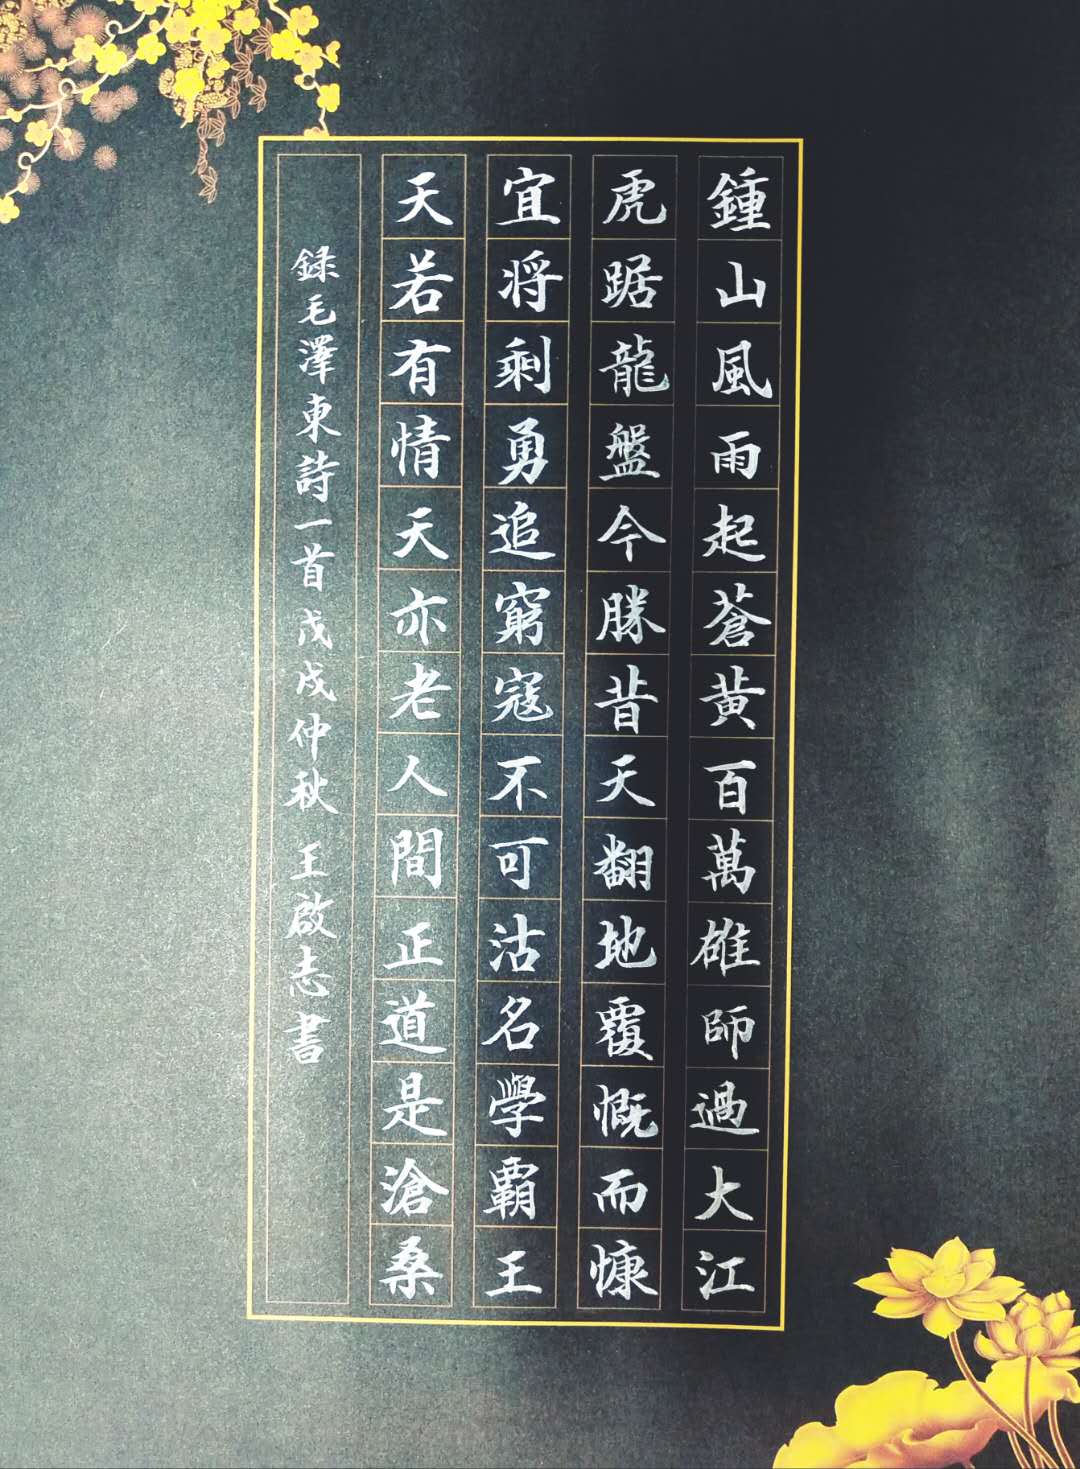 鍾山風雨起蒼黄百萬雄師過大江
虎踞龍盤今勝昔天翻地覆慨而慷
宜将剩勇追窮寇不可沽名學覇王
天若有情天亦老人間正道是滄桑
録毛澤東詩一首戊戌仲秋 王啟志書